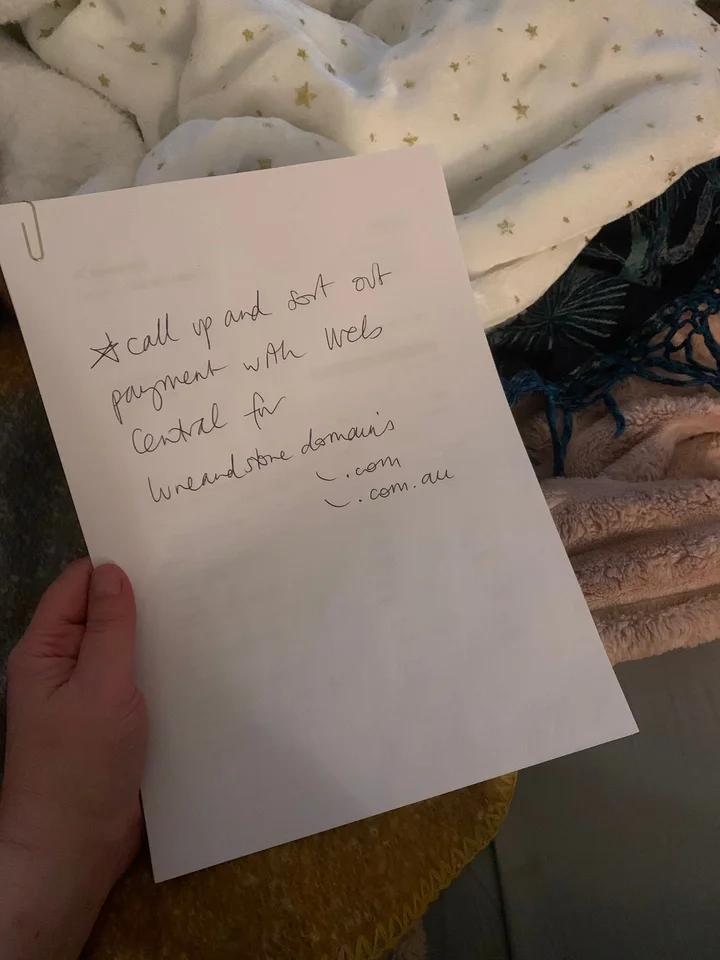 ☆ call up and sort out
payment with Web
Central for
domains
.com
.com.au